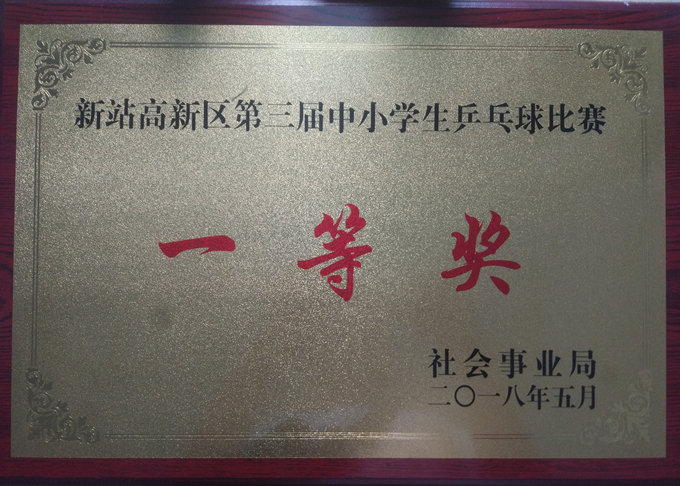 新站高新区第三届中小学生乒乓球比赛
一等奖
社会事业局
二〇一八年五月